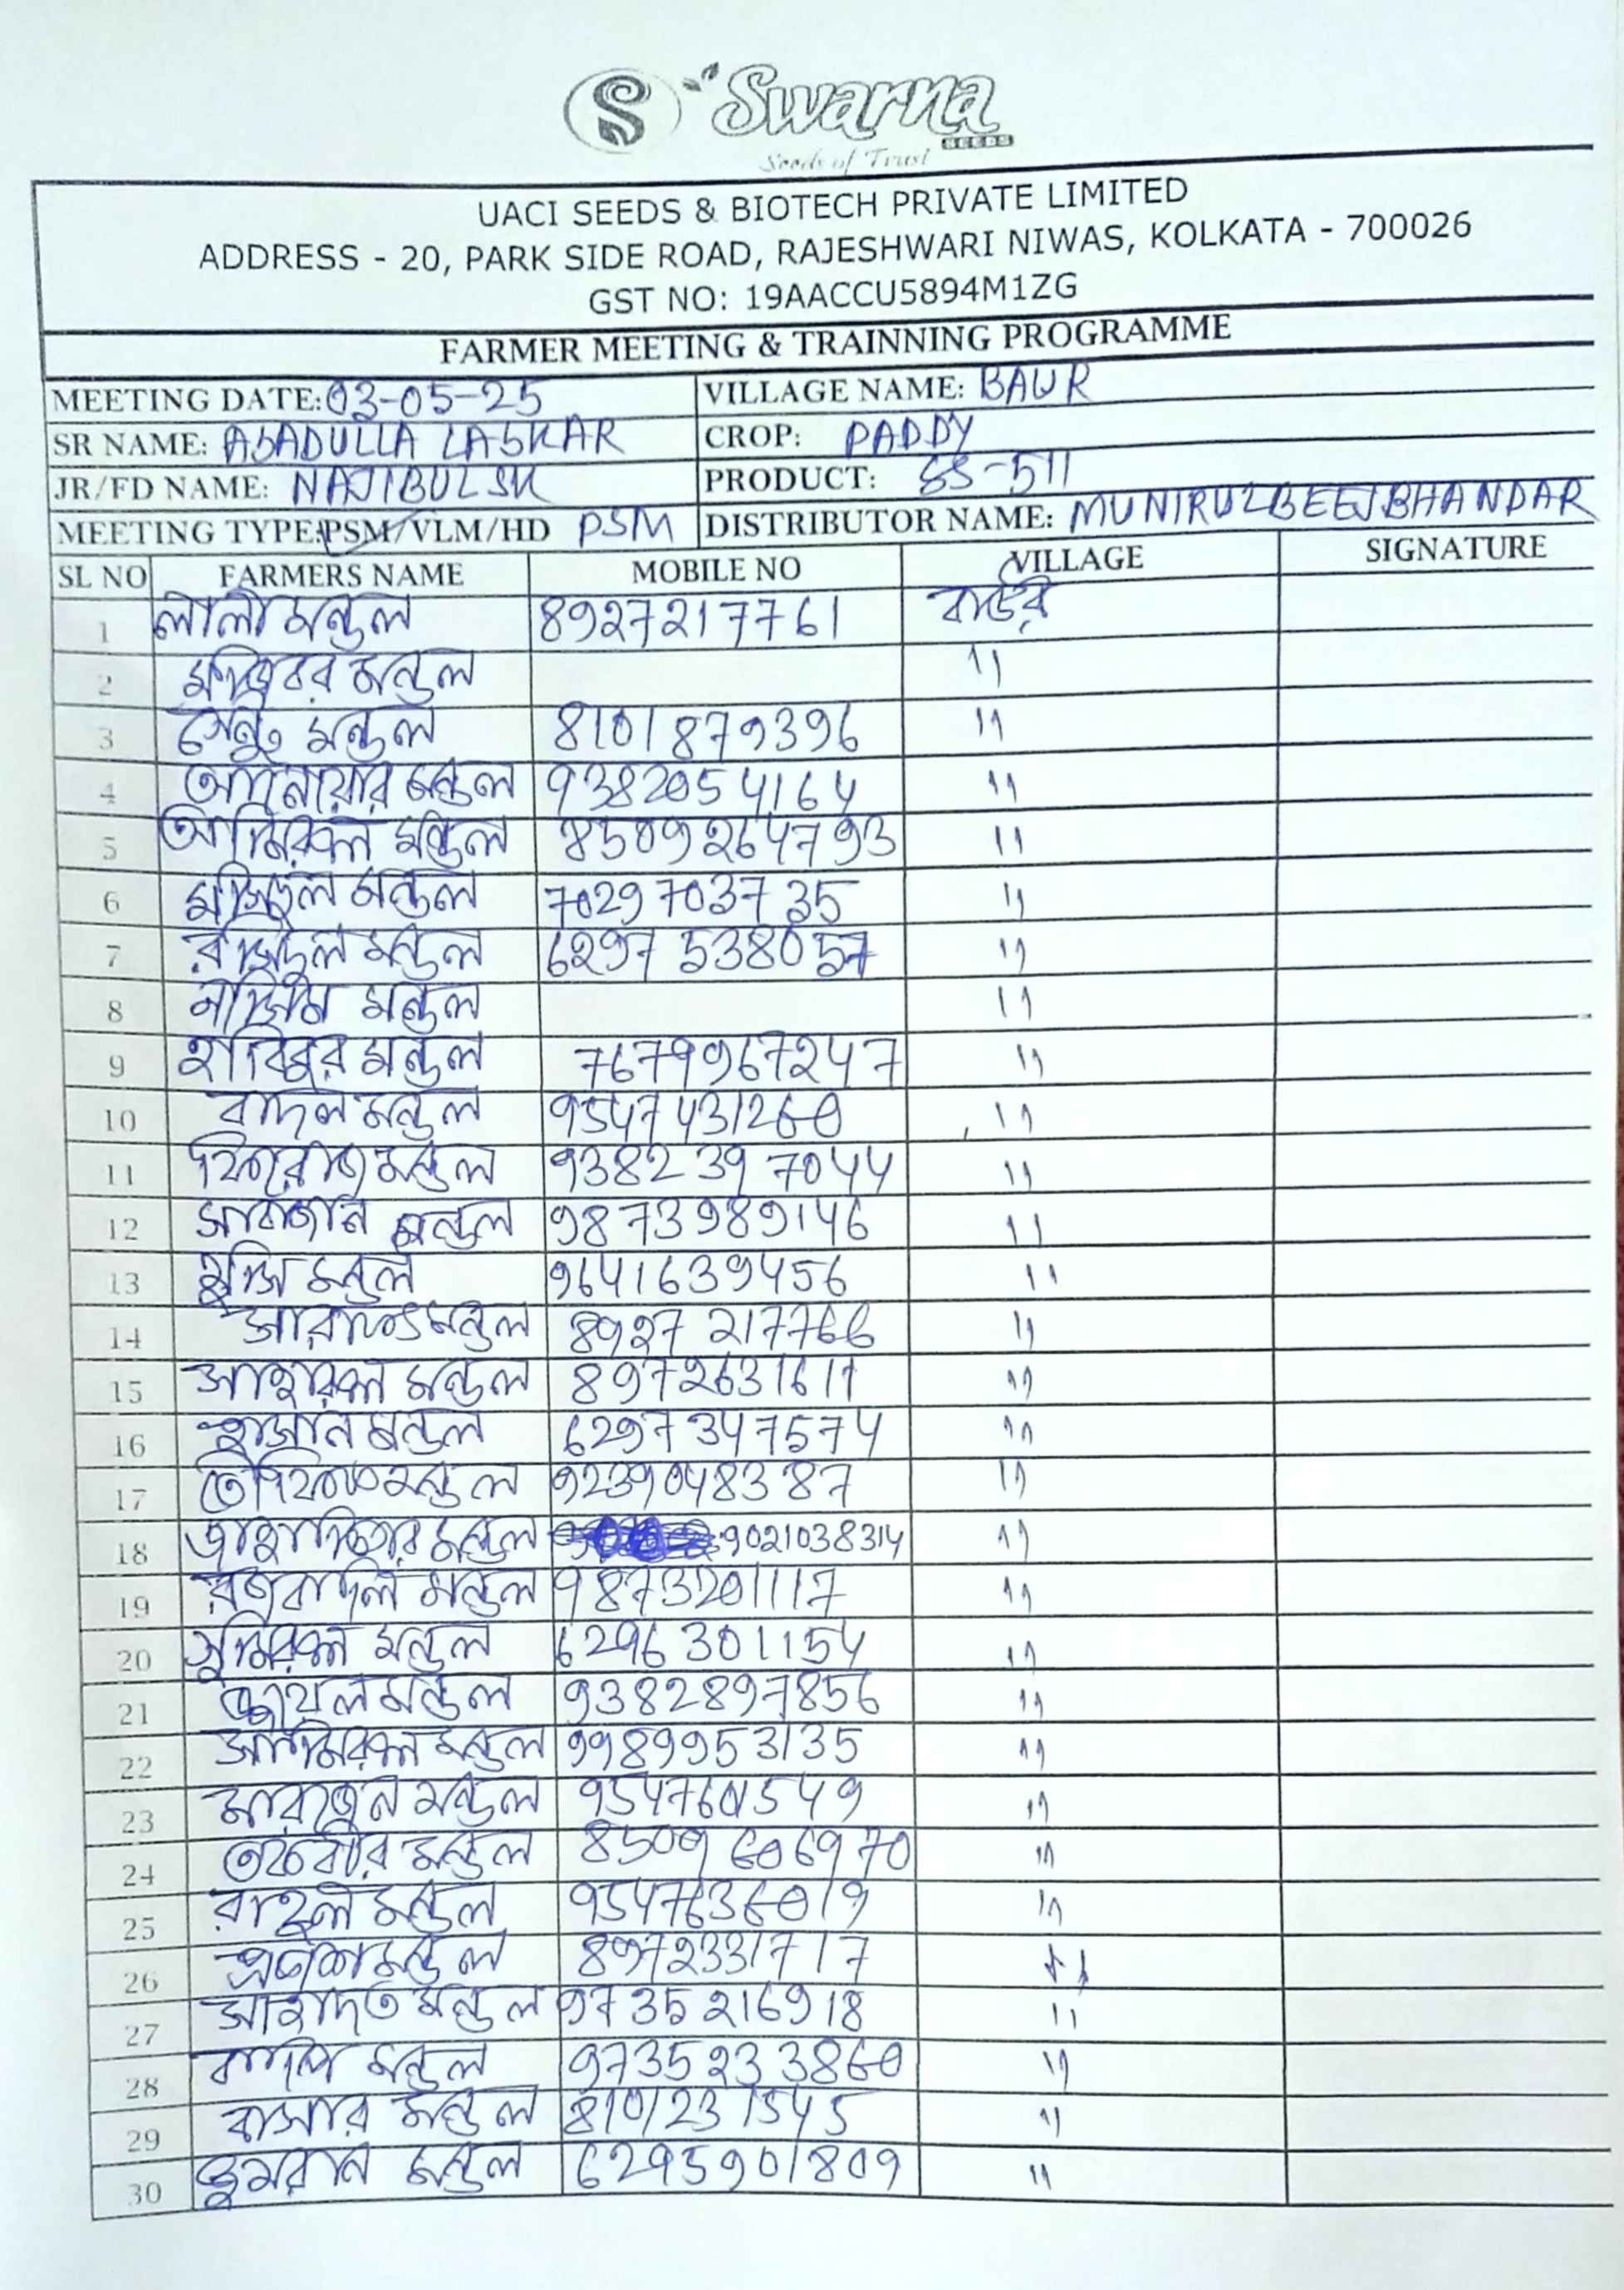 Swarna
SEEDS
Seeds of Trust
UACI SEEDS & BIOTECH PRIVATE LIMITED
ADDRESS - 20, PARK SIDE ROAD, RAJESHWARI NIWAS, KOLKATA - 700026
GST NO: 19AACCU5894M1ZG
FARMER MEETING & TRAINNING PROGRAMME
MEETING DATE: 03-05-25 VILLAGE NAME: BAUR
SR NAME: ASADULLA LASKAR CROP: PADDY
JR/FD NAME: NAJIBUL SK PRODUCT: SS-511
MEETING TYPE: PSM/VLM/HD PSM DISTRIBUTOR NAME: MUNIRUL BEEJ BHANDAR
SL NO FARMERS NAME MOBILE NO VILLAGE SIGNATURE
1 লালী মন্ডল 8927217761 বাউর
2 মন্ডল 11
3 সেন্টু মন্ডল 8101879396 11
4 আনোয়ার মন্ডল 9382054164 11
5 মন্ডল 8509264793 11
6 মন্ডল 7029703735 11
7 মন্ডল 6297538057 11
8 মন্ডল 11
9 হাবিবুর মন্ডল 7679967247 11
10 বাদল মন্ডল 9547431260 11
11 ফিরোজ মন্ডল 9382397044 11
12 মন্ডল 9873989146 11
13 মন্ডল 9641639456 11
14 মন্ডল 8927217766 11
15 মন্ডল 8972631611 11
16 হাসান মন্ডল 6297347574 11
17 মন্ডল 9239048387 11
18 মন্ডল 9021038314 11
19 মন্ডল 9873201117 11
20 মন্ডল 6296301154 11
21 মন্ডল 9382897856 11
22 মন্ডল 9989953135 11
23 মন্ডল 9547601549 11
24 মন্ডল 8509606970 11
25 রাহুল মন্ডল 9547636019 11
26 মন্ডল 8972331717 11
27 সাহাদত মন্ডল 9735216918 11
28 মন্ডল 9735233860 11
29 বাসার মন্ডল 8101231545 11
30 মন্ডল 6295901809 11